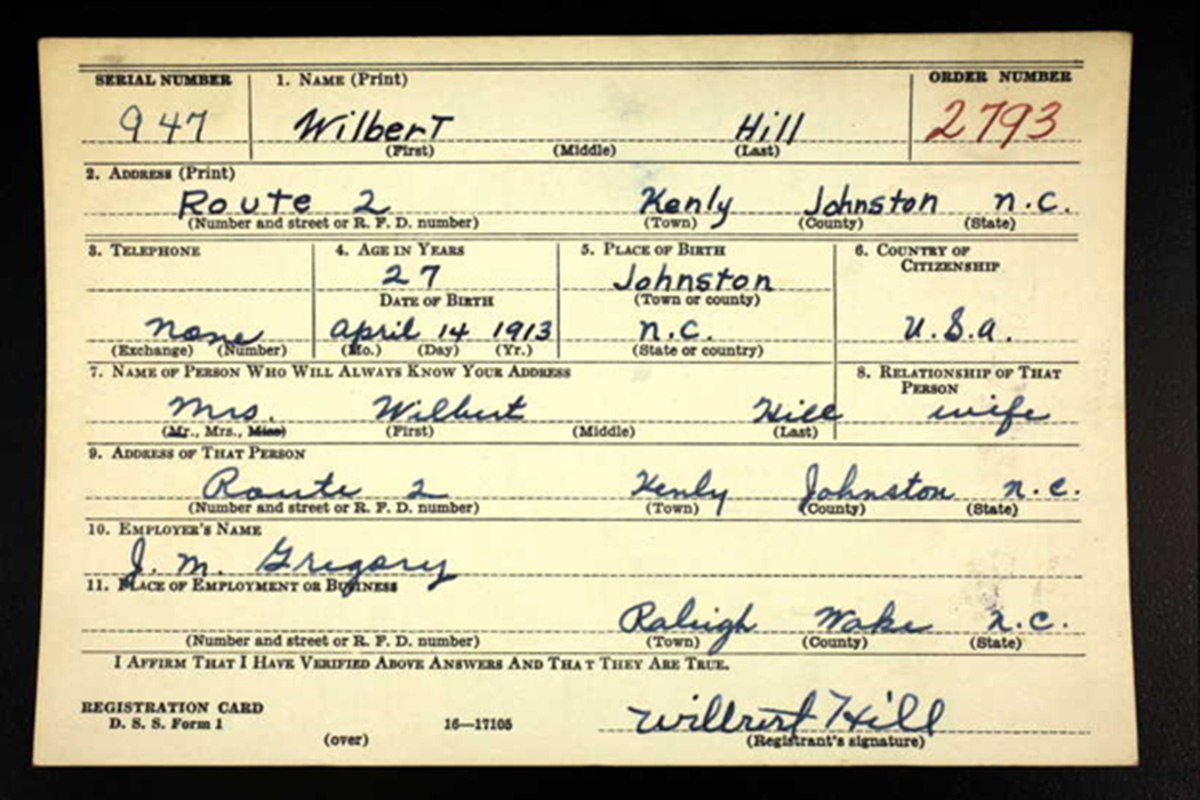 SERIAL NUMBER 1. NAME (Print) ORDER NUMBER
947 Wilbert Hill 2793
(First) (Middle) (Last)
2. ADDRESS (Print)
Route 2 Kenly Johnston N.C.
(Number and street or R. F. D. number) (Town) (County) (State)
3. TELEPHONE 4. AGE IN YEARS 5. PLACE OF BIRTH 6. COUNTRY OF CITIZENSHIP
27 Johnston
DATE OF BIRTH (Town or county)
None April 14 1913 N.C. U.S.A.
(Exchange) (Number) (Mo.) (Day) (Yr.) (State or country)
7. NAME OF PERSON WHO WILL ALWAYS KNOW YOUR ADDRESS 8. RELATIONSHIP OF THAT PERSON
Mrs. Wilbert Hill wife
(Mr., Mrs., Miss) (First) (Middle) (Last)
9. ADDRESS OF THAT PERSON
Route 2 Kenly Johnston N.C.
(Number and street or R. F. D. number) (Town) (County) (State)
10. EMPLOYER'S NAME
J. M. Gregory
11. PLACE OF EMPLOYMENT OR BUSINESS
Raleigh Wake N.C.
(Number and street or R. F. D. number) (Town) (County) (State)
I AFFIRM THAT I HAVE VERIFIED ABOVE ANSWERS AND THAT THEY ARE TRUE.
REGISTRATION CARD
D. S. S. Form 1 16—17105 Wilbert Hill
(over) (Registrant's signature)